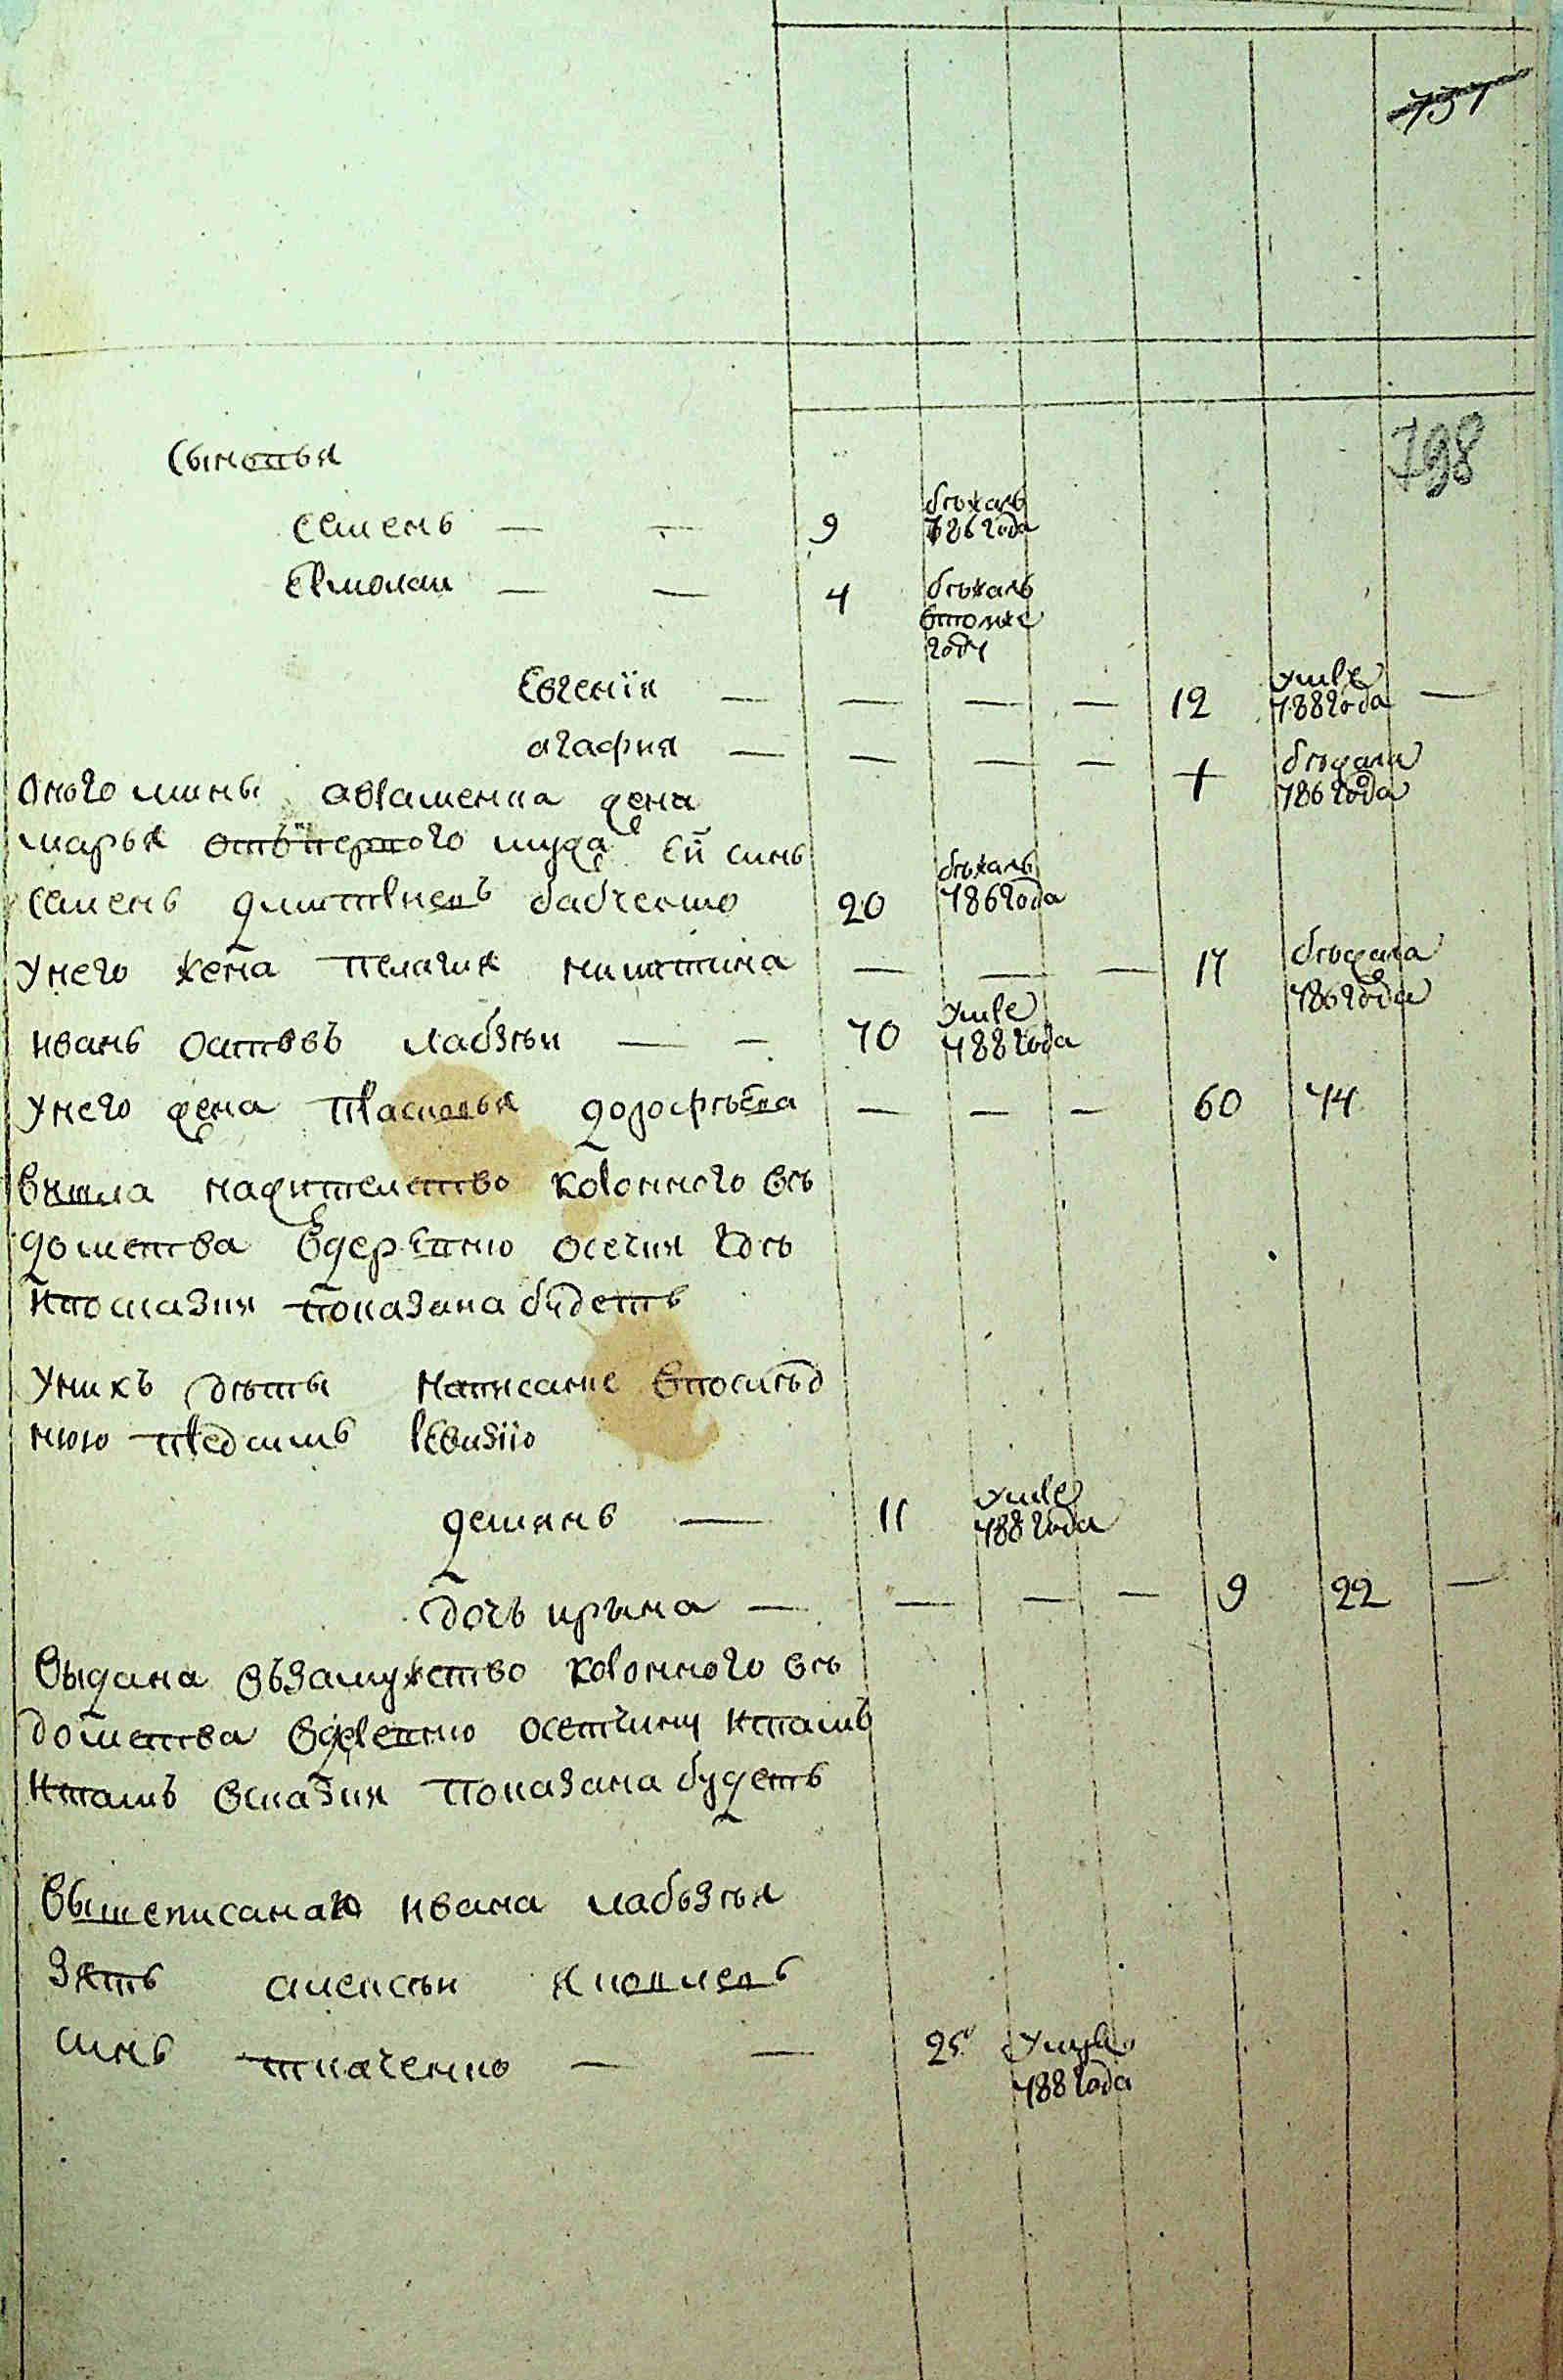 731
798
Сыновья
Семенъ — — 9 бѣжалъ 786 года
Ермолаи — — 4 бѣжалъ втомже году
Евгенїя — — — — 12 умре 788 года —
агафия — — — — бѣжала 786 года
Оного мины авраменка жена
марья отъ перваго мужа ей синъ
Семенъ дмитриевъ бабченко 20 бѣжалъ 786 года
Унего жена пелагия никитина — — — 17 бѣжала 786 года
иванъ осиповъ лабзѣи — — 70 умре 788 года
Унего жена прасковья дорофѣева — — — 60 74
вишла нажителство коронного вѣ
домства вдеревню гдѣ
ипосказки показана будетъ
Унихъ дѣти написание впослѣд
нюю предсимъ ревизїю
демянъ — 11 умре 788 года
дочъ ирына — — — — 9 22 —
Выдана възамужство коронного вѣ
домства вдеревню итамъ
итамъ всказки показана будетъ
Вышеписанаго ивана лабъзѣя
Зять алексѣи яковлевъ
синъ ткаченко — — 25 умре 788 года